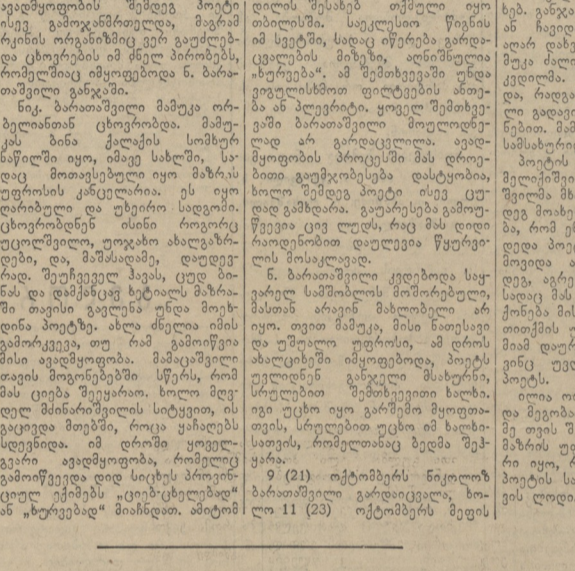 ავადმყოფობის შემდეგ პოეტი
ისევ გამოჯანმრთელდა, მაგრამ
რკინის ორგანიზმიც ვერ გაუძლებ-
და ცხოვრების იმ ძნელ პირობებს,
რომელშიაც იმყოფებოდა ნ. ბარა-
თაშვილი განჯაში.
ნიკ. ბარათაშვილი მამუკა ორ-
ბელიანთან ცხოვრობდა. მამუ-
კას ბინა ქალაქის სომხურ
ნაწილში იყო, იმავე სახლში, სა-
დაც მოთავსებული იყო მაზრის
უფროსის კანცელარია. ეს იყო
ღარიბული და უხეირო სადგომი.
ცხოვრობდნენ ისინი როგორც
უცოლშვილო, უოჯახო ახალგაზრ-
დები, და, მაშასადამე, დაუდევ-
რად. შეუჩვეველ ჰავას, ცუდ ბი-
ნას და დამქანცავ ხეტიალს მაზრა-
ში თავისი გავლენა უნდა მოეხ-
დინა პოეტზე. ახლა ძნელია იმის
გამორკვევა, თუ რამ გამოიწვია
მისი ავადმყოფობა. მამაცაშვილი
თავის მოგონებებში სწერს, რომ
მას ციება შეეყარაო. ხოლო მღვ-
დელ მძინარიშვილის სიტყვით, ის
გაცივდა მთებში, როცა ყაჩაღებს
სდევნიდა. იმ დროში ყოველ-
გვარი ავადმყოფობა, რომელიც
გამოიწვევდა დიდ სიცხეს პროვინ-
ციულ ექიმებს „ციებ-ცხელებად“
ან „ხურვებად“ მიაჩნდათ. ამიტომ
დილის შესახებ თქმული იყო
თბილისში. საეკლესიო წიგნის
იმ სვეტში, სადაც იწერება გარდა-
ცვალების მიზეზი, აღნიშნულია
„ხურვება“. ამ შემთხვევაში უნდა
ვიგულისხმოთ ფილტვების ანთე-
ბა ან პლევრიტი. ყოველ შემთხვე-
ვაში ბარათაშვილი მოულოდნე-
ლად არ გარდაცვლილა. ავად-
მყოფობის პროცესში მას დროე-
ბითი გაუმჯობესება დასტყობია,
ხოლო შემდეგ პოეტი ისევ ცუ-
დად გამხდარა. გაუარესება გამოუ-
წვევია ცივ ლუდს, რაც მას დიდი
რაოდენობით დაულევია წყურვი-
ლის მოსაკლავად.
ნ. ბარათაშვილი კვდებოდა საყ-
ვარელ სამშობლოს მოშორებული,
მასთან არავინ მახლობელი არ
იყო. თვით მამუკა, მისი ნათესავი
და უშუალო უფროსი, ამ დროს
ახალციხეში იმყოფებოდა, პოეტს
უვლიდნენ განჯელი მსახურნი,
სრულებით შემთხვევითი ხალხი.
იგი უცხო იყო გარშემო მყოფთა-
თვის, სრულებით უცხო იმ ხალხი-
სათვის, რომელთანაც ბედმა შეჰ-
ყარა.
9 (21) ოქტომბერს ნიკოლოზ
ბარათაშვილი გარდაიცვალა, ხო-
ლო 11 (23) ოქტომბერს მეფის